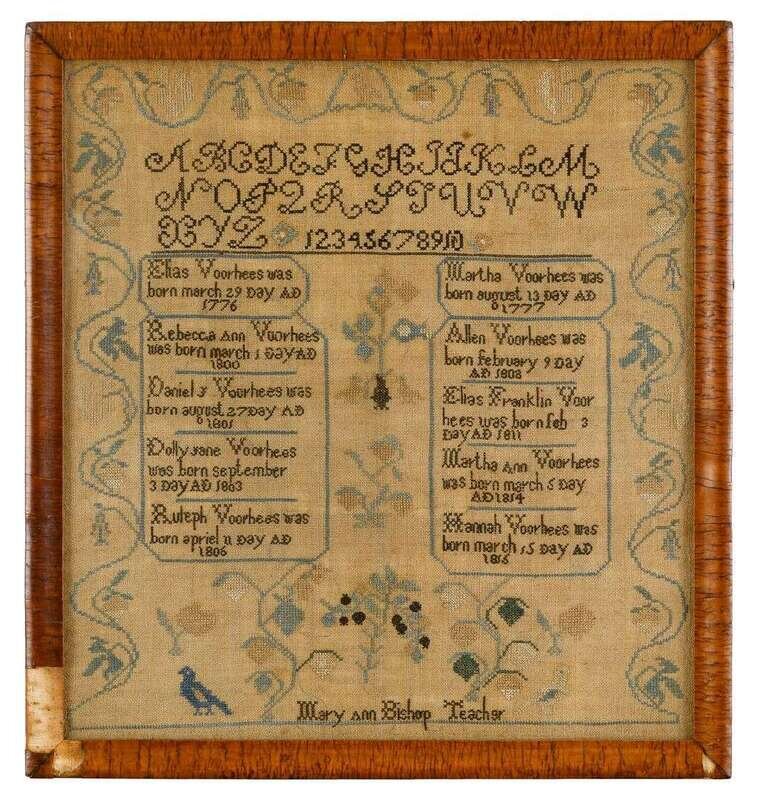 A B C D E F G H I J K L M
N O P Q R S T U V W
X Y Z 1 2 3 4 5 6 7 8 9 10
Elias Voorhees was
born march 29 Day AD
1776
Rebecca Ann Voorhees
was born march 1 Day AD
1800
Daniel J Voorhees was
born august 27 Day AD
1801
Dolly Jane Voorhees
was born september
3 Day AD 1803
Ruleph Voorhees was
born apriel 11 Day AD
1806
Martha Voorhees was
born august 13 Day AD
1777
Allen Voorhees was
born february 9 Day
AD 1808
Elias Franklin Voor
hees was born feb 3
Day AD 1811
Martha Ann Voorhees
was born march 5 Day
AD 1814
Hannah Voorhees was
born march 15 Day AD
1816
Mary Ann Bishop Teacher